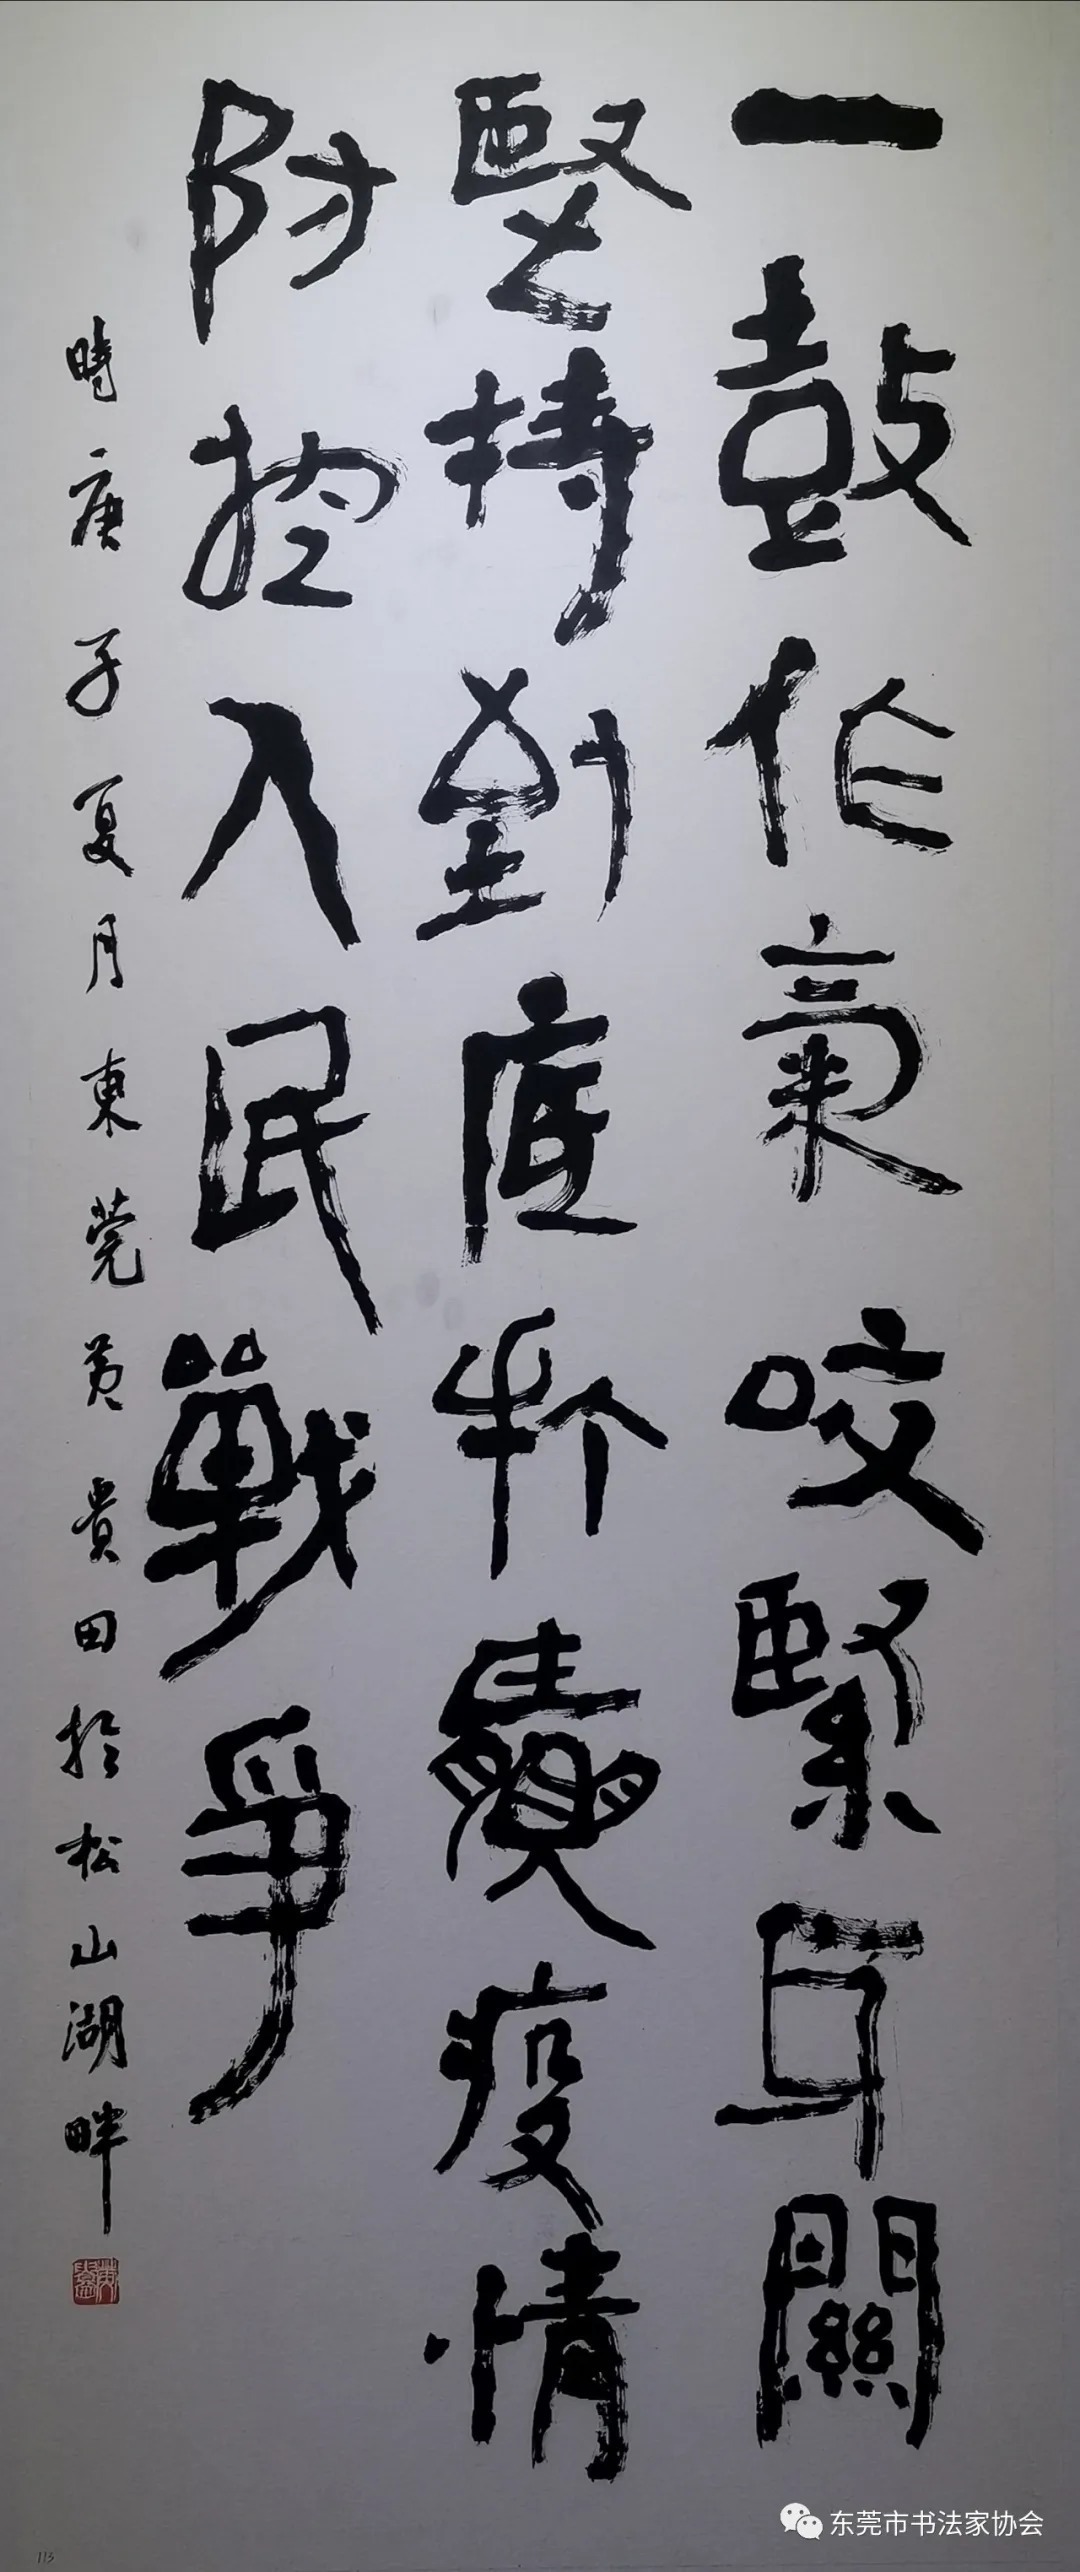 一鼓作氣咬緊牙關
堅持到底打贏疫情
防控人民戰爭
時庚子夏月東莞黄貴田於松山湖畔
东莞市书法家协会
113